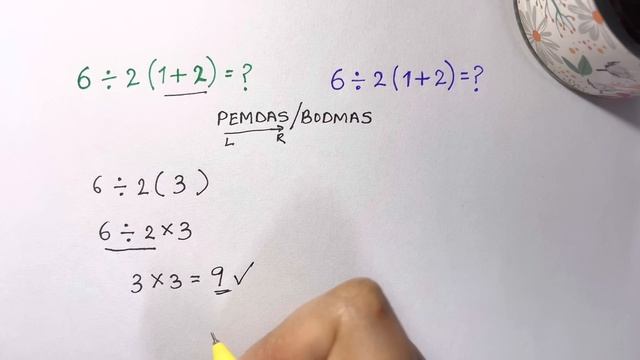 6 ÷ 2 (1 + 2) = ? 6 ÷ 2 (1 + 2) = ?
PEMDAS/BODMAS
L R
6 ÷ 2 ( 3 )
6 ÷ 2 × 3
3 × 3 = 9 ✓